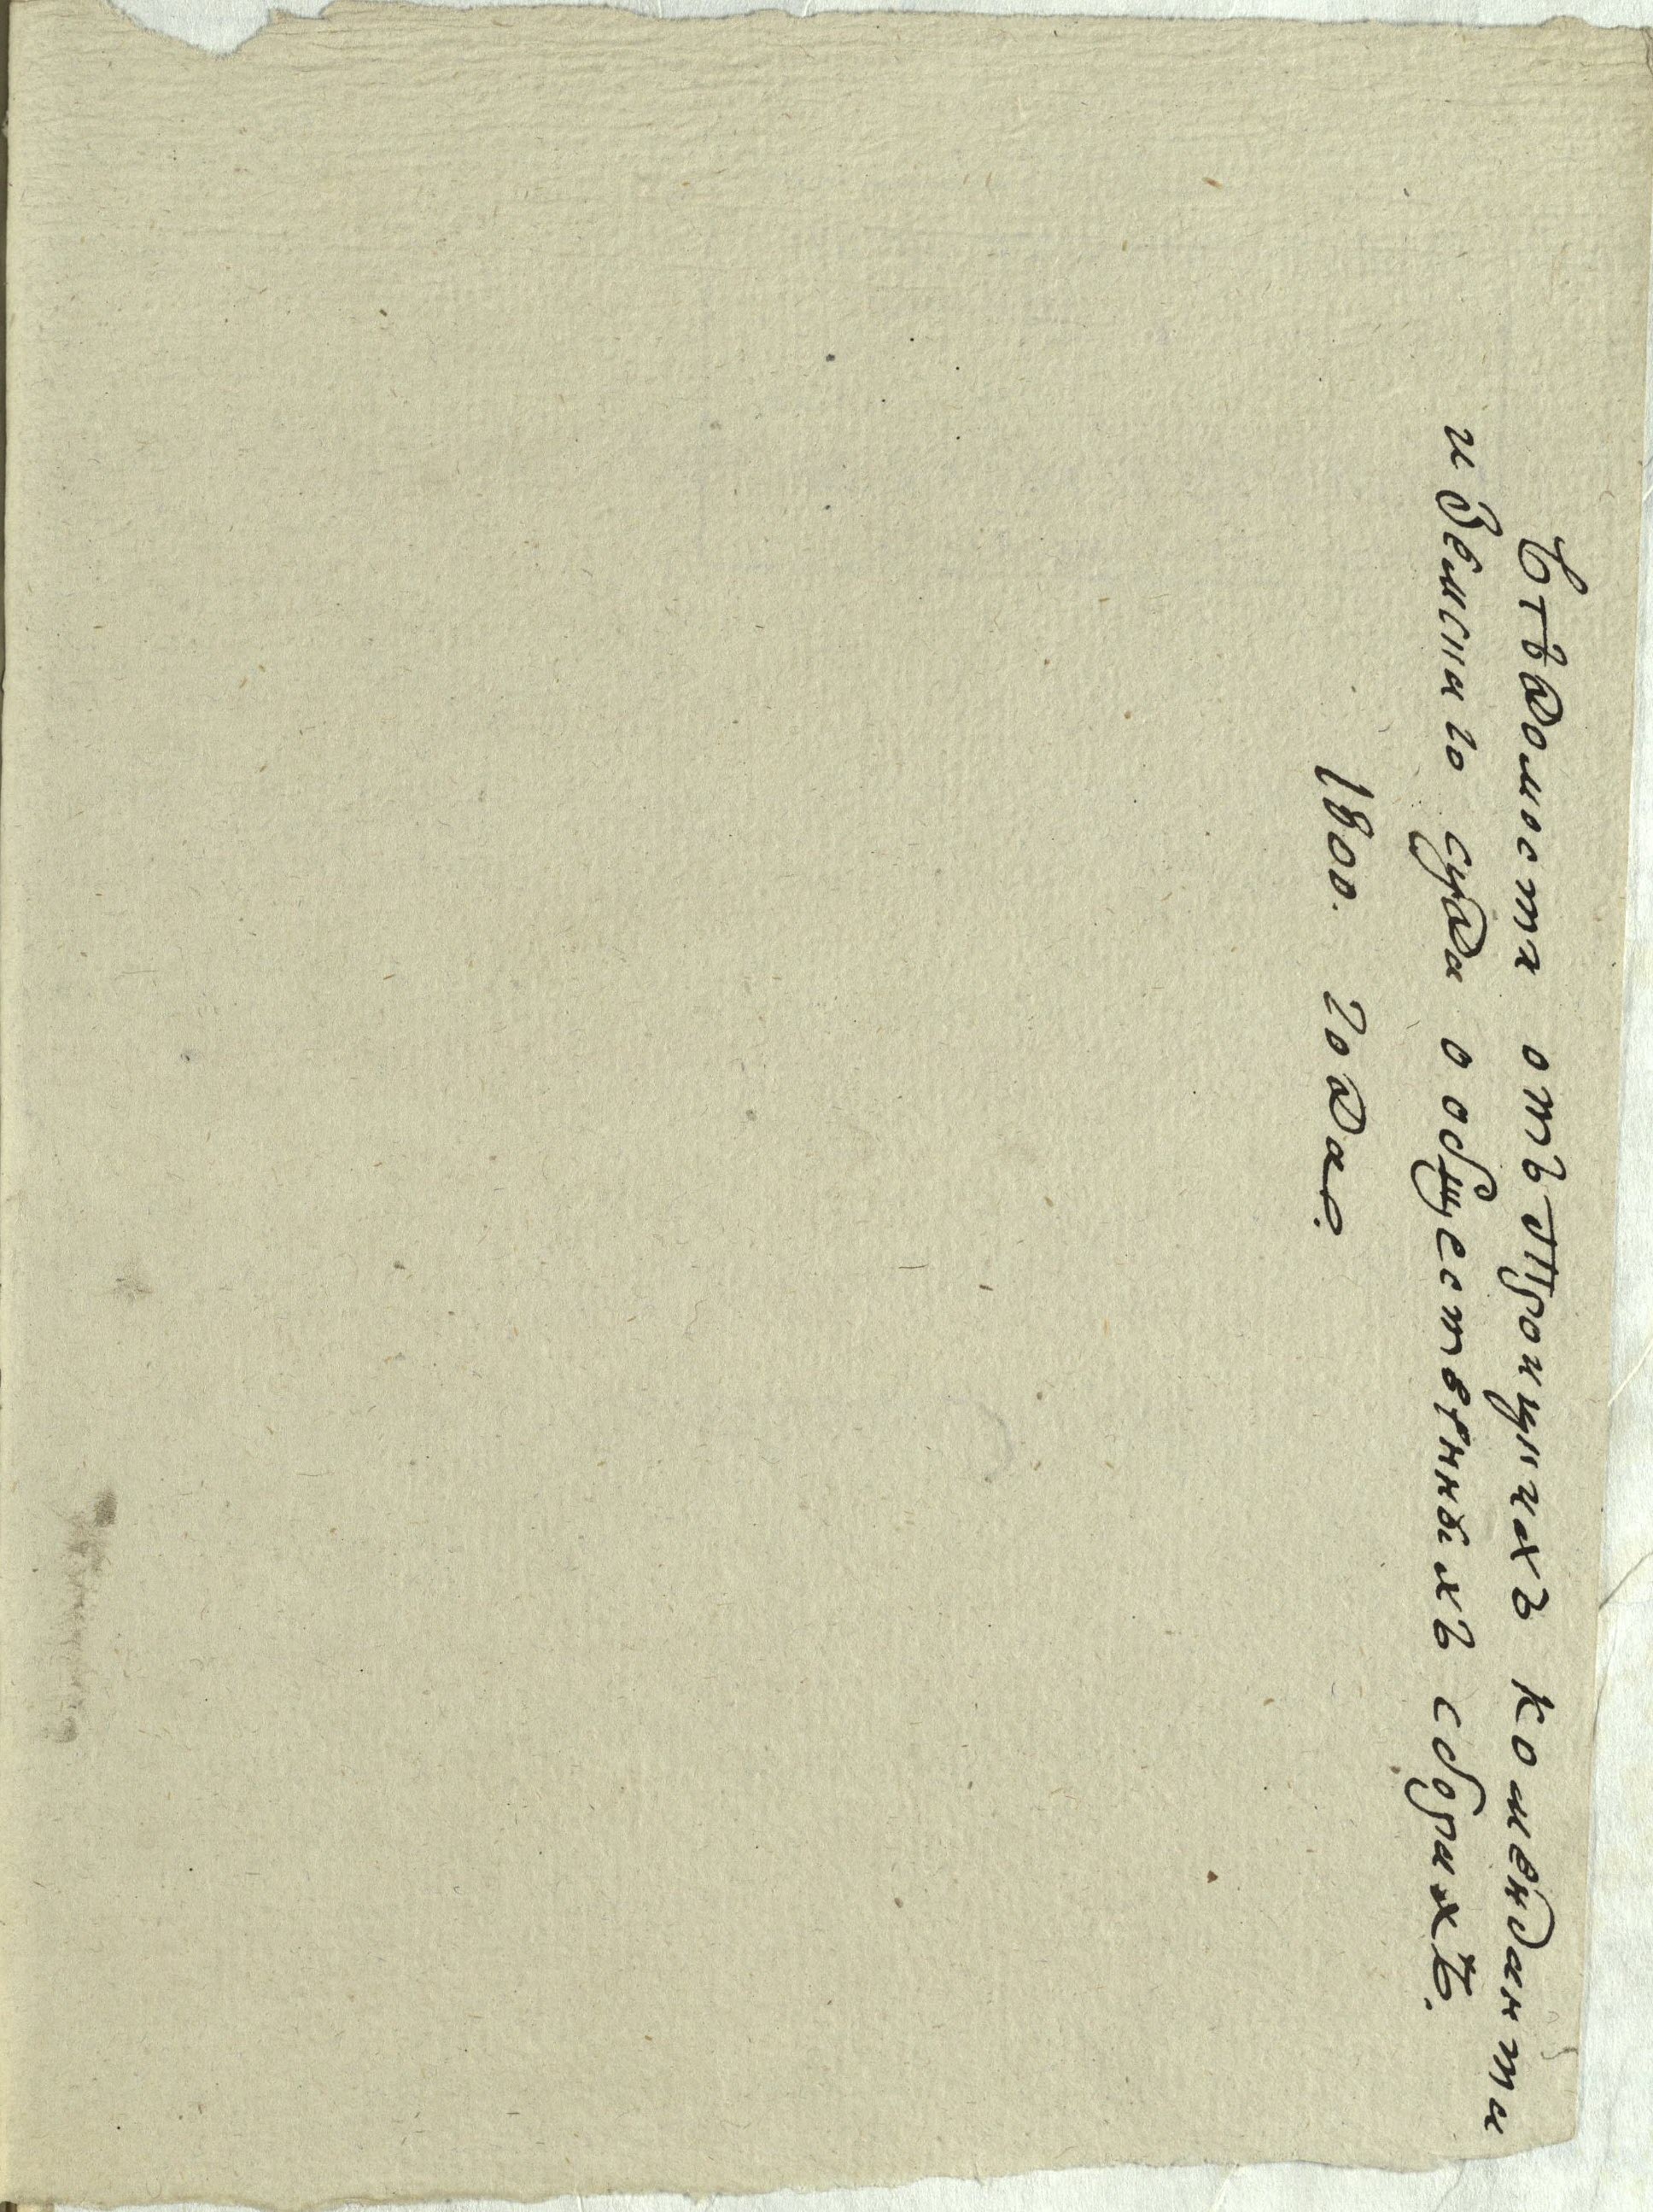 Вѣдомости отъ Троицкихъ коменданта
и Земскаго суда о общественныхъ сборахъ.
1800. года.